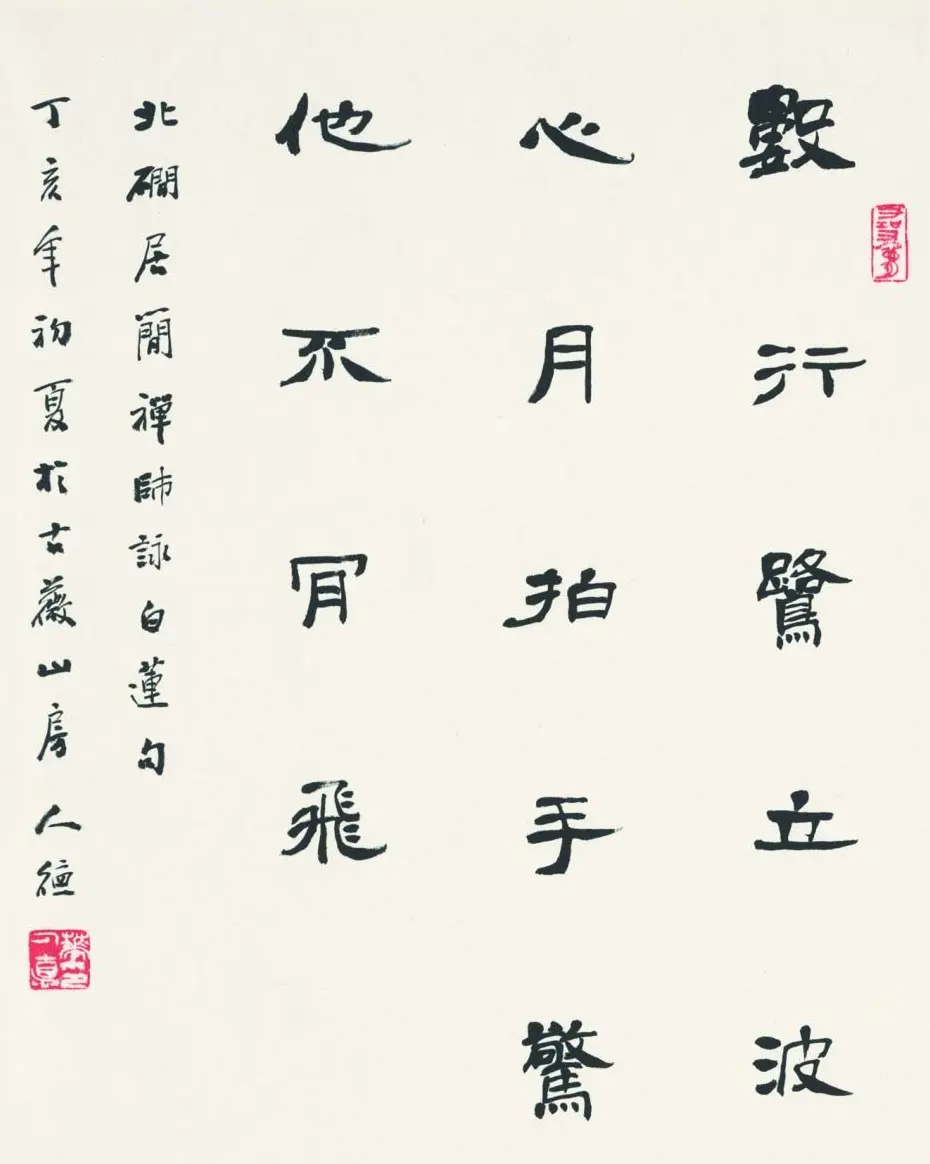 數行鷺立波
心月拍手驚
他不肎飛
北磵居簡禪師詠白蓮句
丁亥年初夏於古薇山房人德